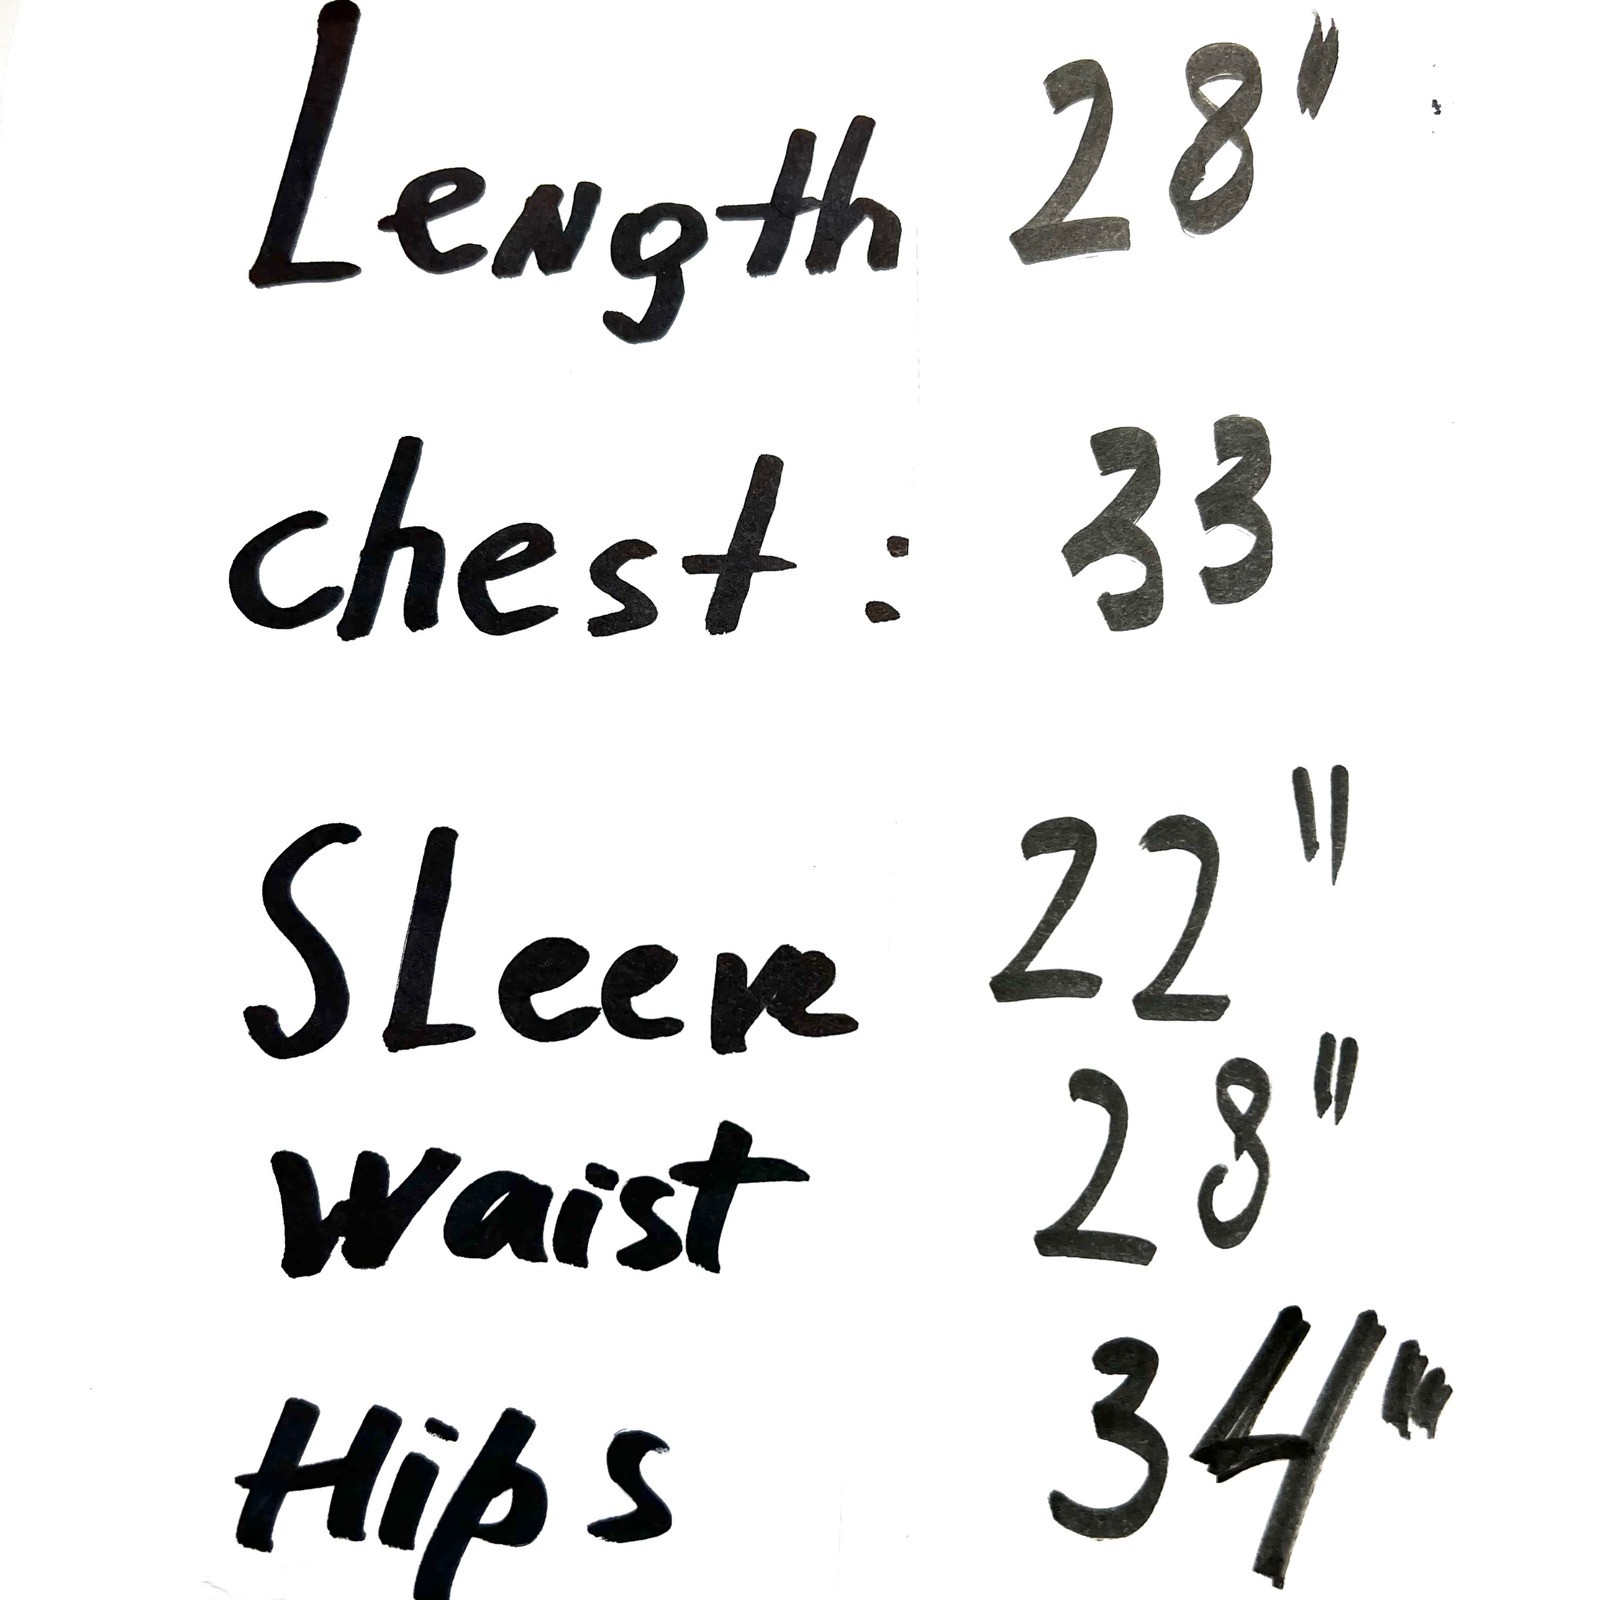 Length 28"
chest : 33
SLeeve 22"
Waist 28"
Hips 34"